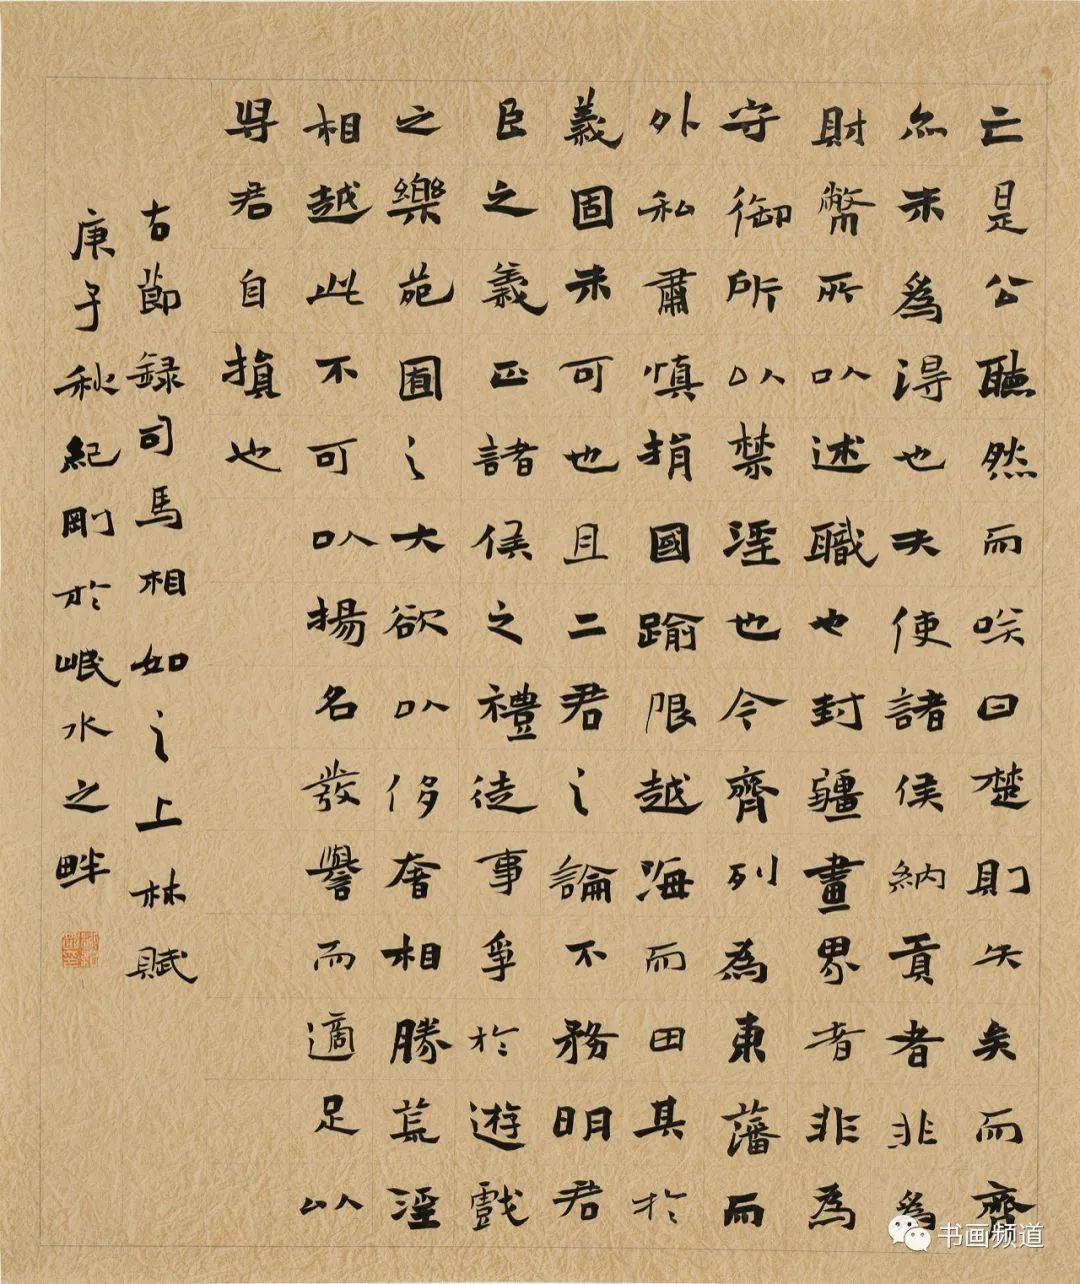 亡是公聽然而咲曰楚則失矣而齊
亦未爲得也夫使諸侯納貢者非爲
財幣所以述職也封疆畫界者非為
守御所以禁淫也今齊列為東藩而
外私肅慎捐國踰限越海而田其於
義固未可也且二君之論不務明君
臣之義正諸侯之禮徒事爭於遊戲
之樂苑囿之大欲以侈奢相勝荒淫
相越此不可以揚名發譽而適足以
君自損也
右節録司馬相如之上林賦
庚子秋紀剛於岷水之畔
书画频道